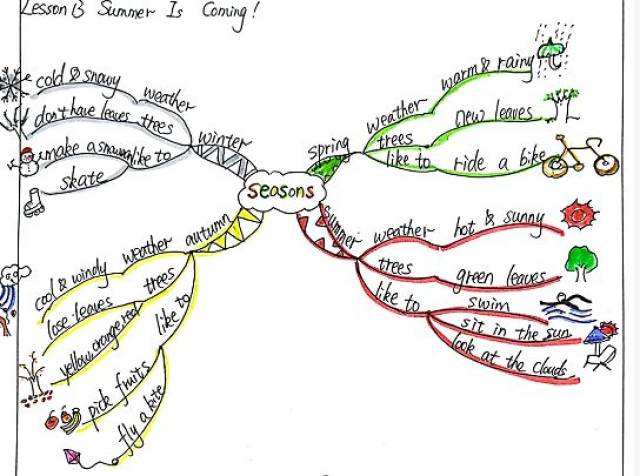 Lesson 13 Summer Is Coming!
seasons
spring
weather
warm & rainy
trees
new leaves
like to
ride a bike
summer
weather
hot & sunny
trees
green leaves
like to
swim
sit in the sun
look at the clouds
autumn
weather
cool & windy
trees
lose leaves
yellow, orange, red
like to
pick fruits
fly a kite
winter
weather
cold & snowy
trees
don't have leaves
like to
make a snowman
skate